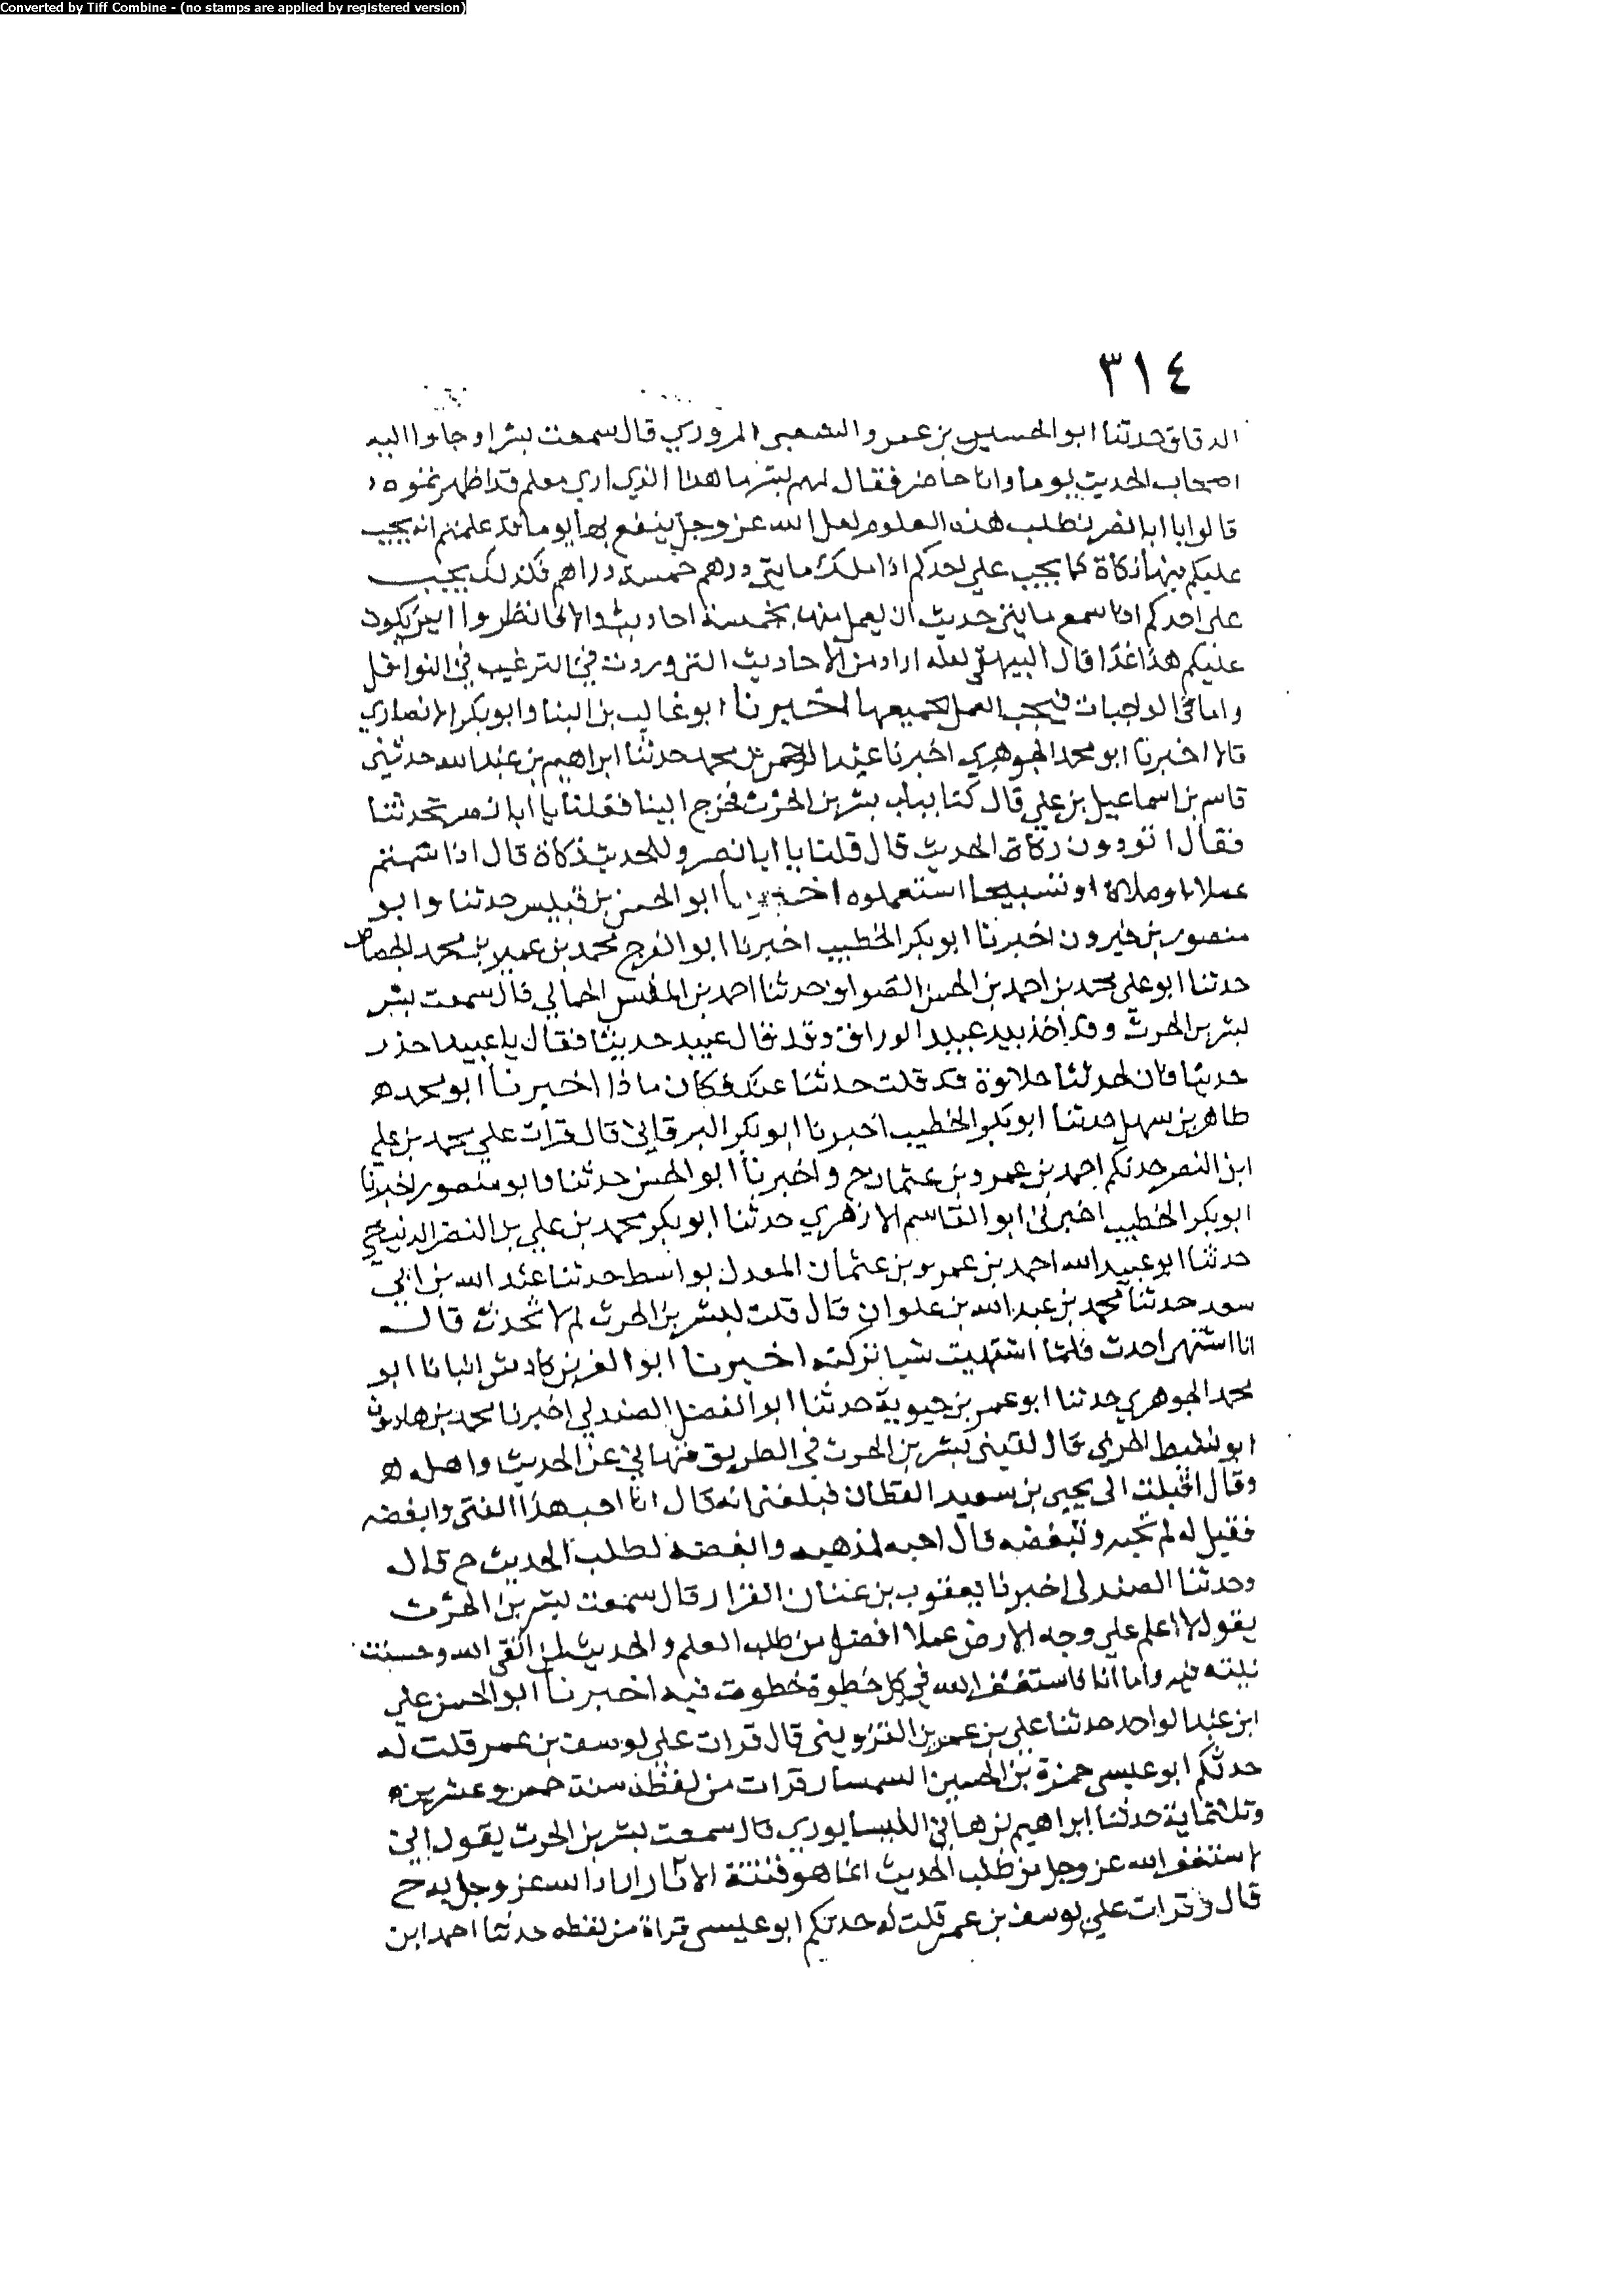 Converted by Tiff Combine - (no stamps are applied by registered version)
٣١٤
الدقاق حدثنا ابو الحسين بن عمرو الشعبى المروزي قال سمعت بشرا وجاوا اليه
اصحاب الحديث يوما وانا حاضر فقال لهم بشر ما هذا الذي اري معكم قد اظهرتموه
قالوا يا ابا نصر نطلب هذه العلوم لعل الله عز وجل ينفع بها يوما قد علمتم انه يجب
عليكم فيها زكاة كما يجب علي احدكم اذا ملك مايتي درهم خمسة دراهم فكذلك يجب
على احدكم اذا سمع مايتى حديث ان يعمل منها بخمسة احاديث والا فانظروا ايش يكون
عليكم هذا غدا قال البيهقي لعله اراد من الاحاديث التي وردت في الترغيب في النوافل
واما في الواجبات فيجب العمل بجميعها اخبرنا ابو غالب بن البنا وابو بكر الانصاري
قالا اخبرنا ابو محمد الجوهري اخبرنا عبد الرحمن بن محمد حدثنا ابراهيم بن عبد الله حدثني
قاسم بن اسماعيل بن علي قال كنا بباب بشر بن الحرث فخرج الينا فقلنا يا ابا نصر تحدثنا
فقال اتودون زكاة الحديث قال قلنا يا ابا نصر وللحديث زكاة قال اذا سمعتم
عملا او صلاة او تسبيحا استعملوه اخبرنا ابو الحسن بن قبيس حدثنا وابو
منصور بن خيرون اخبرنا ابو بكر الخطيب اخبرنا ابو الفرج محمد بن عمير بن محمد الجصاص
حدثنا ابو علي محمد بن احمد بن الحسن الصواف حدثنا احمد بن المغلس الحماني قال سمعت بشر
بشر بن الحرث وقد اخذ بيد عبيد الوراق وقد قال عبيد حديثا فقال يا عبيد احذر
حدثنا فان لحدثنا حلاوة قد قلت حدثنا عنك فكان ماذا اخبرنا ابو محمد
طاهر بن سهل حدثنا ابو بكر الخطيب اخبرنا ابو بكر البرقاني قال قرات علي محمد بن علي
ابن النضر حدثكم احمد بن عمرو بن عثمان ح واخبرنا ابو الحسن حدثنا وابو منصور اخبرنا
ابو بكر الخطيب اخبرني ابو القاسم الازهري حدثنا ابو بكر محمد بن علي بن النضر الديباجي
حدثنا ابو عبيد الله احمد بن عمرو بن عثمان المعدل بواسط حدثنا عبد الله بن ابي
سعد حدثنا محمد بن عبد الله بن علوان قال قلت لبشر بن الحرث لم لا تحدث قال
انا اشتهي احدث فلما اشتهيت شيا تركته اخبرنا ابو العز بن كادش انبانا ابو
محمد الجوهري حدثنا ابو عمر بن حيوية حدثنا ابو الفضل الصندلي اخبرنا محمد بن هارون
ابو نشيط الحربي قال لقيني بشر بن الحرث في الطريق فنهاني عن الحديث واهله
وقال اقبلت الى يحيى بن سعيد القطان فبلغني انه قال انا احب هذا الفتى وابغضه
فقيل له لم تحبه وتبغضه قال احبه لمذهبه وابغضه لطلب الحديث ح قال
وحدثنا الصندلى اخبرنا يعقوب بن عثمان القزاز قال سمعت بشر بن الحرث
يقول لا اعلم علي وجه الارض عملا افضل من طلب العلم والحديث لمن اتقى الله وحسنت
نيته فيه واما انا فاستغفر الله في كل خطوة خطوت فيه اخبرنا ابو الحسن علي
ابن عبد الواحد حدثنا علي بن عمر بن القزويني قال قرات علي يوسف بن عمر قلت له
حدثكم ابو عيسى حمزة بن الحسين السمسار قرات من لفظه سنة خمس وعشرين
وثلاثماية حدثنا ابراهيم بن هاني النيسابوري قال سمعت بشر بن الحرث يقول اني
استغفر الله عز وجل من طلب الحديث انما هو فتنة الا من اراد الله عز وجل به ح
قال وقرات علي يوسف بن عمر قلت له حدثكم ابو عيسى قراة من لفظه حدثنا احمد ابن